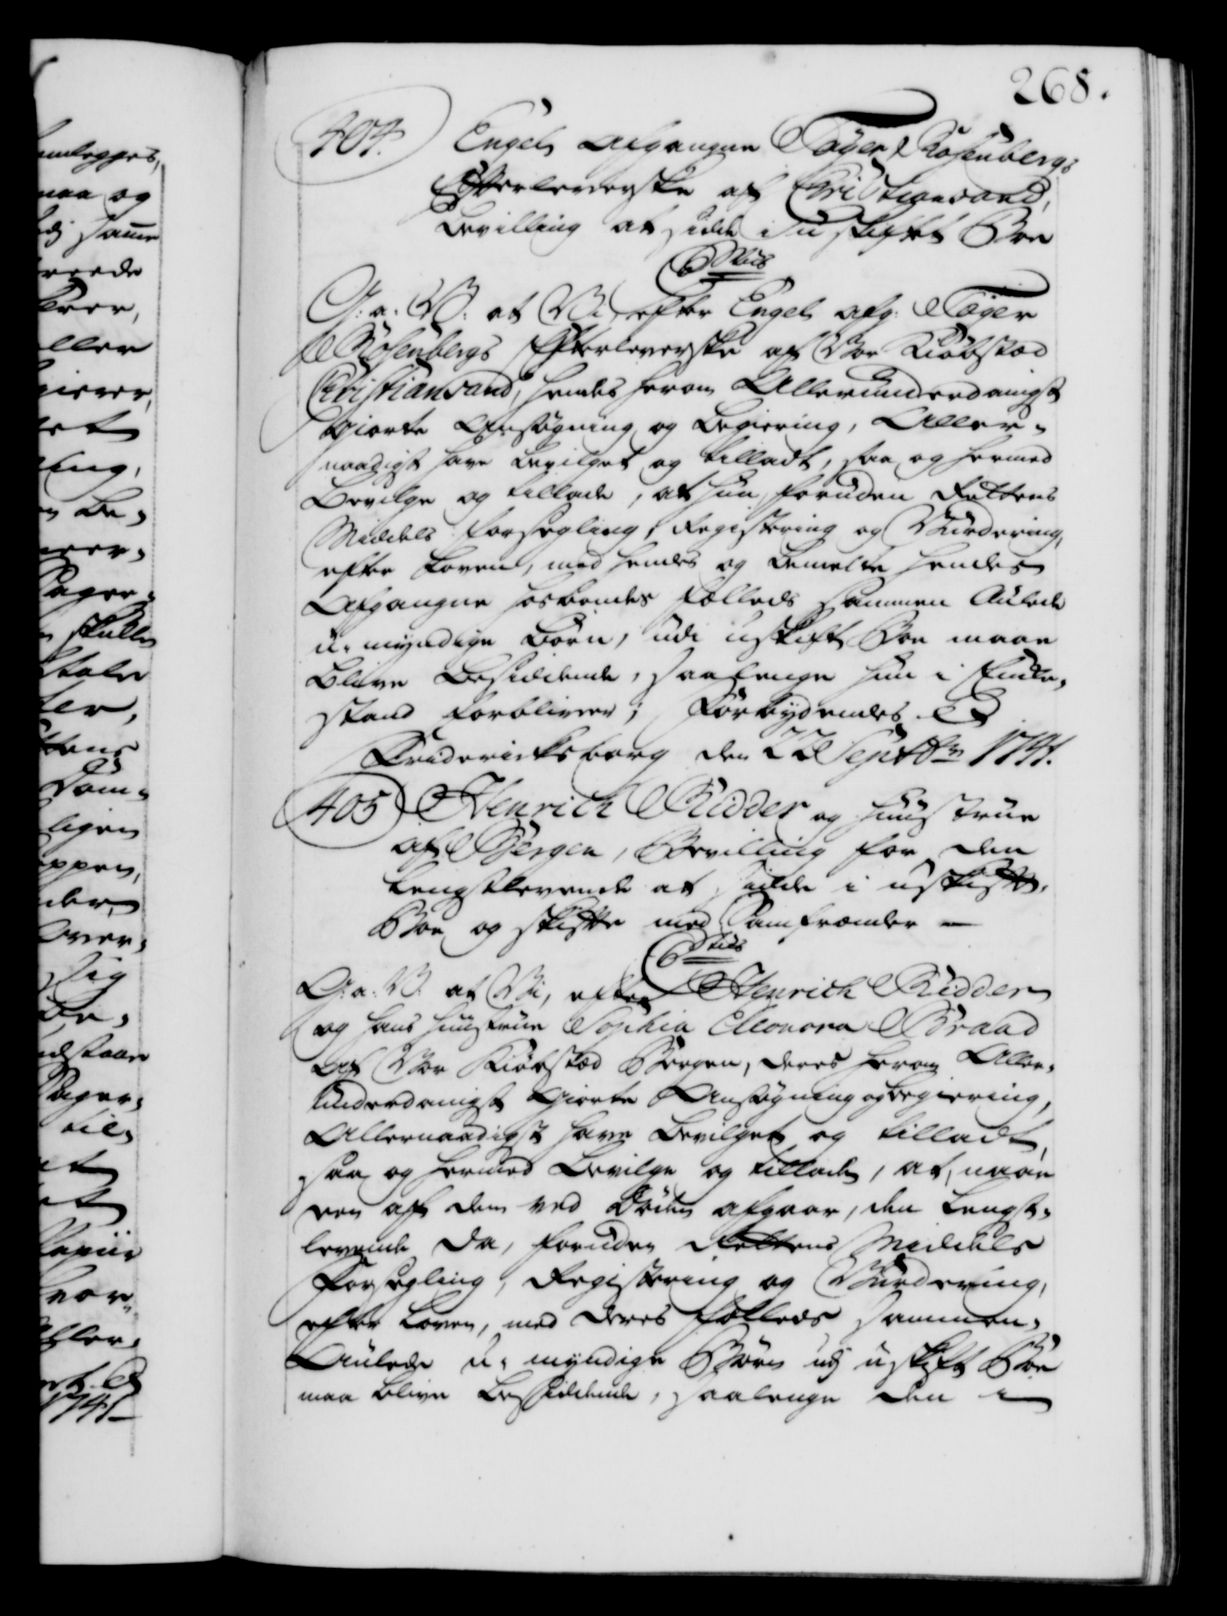 268.
404. Engels Afgangne Tøger Rosenbergs
Efterleverske af Christiansand,
Bevilling at sidde i uskiftet Boe
G: a: V: at Vi, efter Engels afg: Tøger
Rosenbergs Efterleverske af Vor Kiøbstad
Christiansand, hendes herom Allerunderdanigst
giorte Ansøgning og Begiering, Aller-
naadigst have bevilget og tilladt, saa og hermed
Bevilge og tillade, at hun, foruden Rettens
Middels Forsegling, Registering og Vurdering,
efter Loven, med hendes og bemelte hendes
Afgangne Hosbondes fælleds sammen Aulede
u-myndige Børn, udi uskift Boe maae
blive besiddende, saalenge hun i Encke-
stand forbliver; Forbydendes &
Friderichsborg den 22 Septbr 1741.
405 Henrich Ridder og Huustrue
af Bergen, Bevilling for den
Lengstlevende at sidde i uskifft-
Boe og skiffte med Samfrænder —
G: a: V: at Vi, efter Henrich Ridder
og hans Huustrue Sophia Eleonora Braad
af Vor Kiøbstad Bergen, deres herom Aller-
underdanigst giorte Ansøgning og begiering,
Allernaadigst have bevilget og tilladt,
saa og hermed bevilge og tillade, at, naar
een af dem ved Døden afgaar, den Lengst-
levende da, foruden Rettens Middels
Forsegling, Registering og Vurdering,
efter Loven, med deres fælleds sammen-
Aulede u-myndige Børn udj uskift Boe
maa blive besiddende, saalenge den i